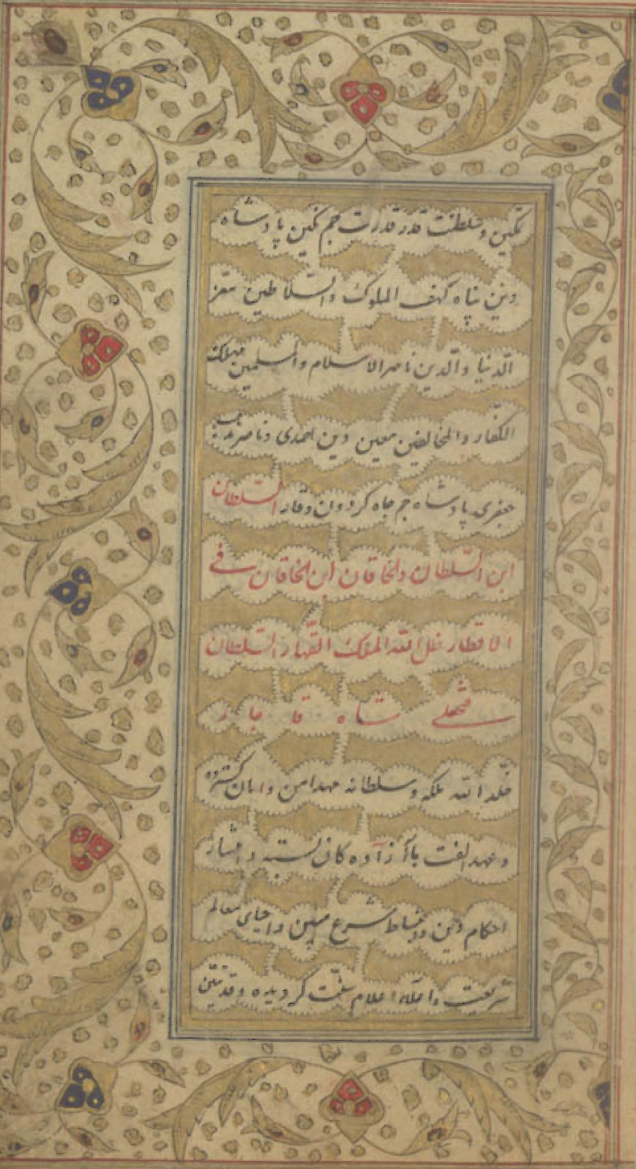 تمکین و سلطنت قدر قدرت جم نکین پادشاه
دین پناه کهف الملوک والسّلاطین معز
الدّنیا والدّین ناصر الاسلام والمسلمین مهلک
الکفّار والمخالفین معین دین احمدی و ناصر مذهب
جعفری پادشاه جم جاه کردون وقار السّلطان
ابن السّلطان والخاقان ابن الخاقان فی
الاقطار ظل الله الملوک القهار السلطان
فتحعلی شاه قاجار
خلّد الله ملکه و سلطانه مهد امن و امان کسترده
و عهد الفت با آزاده کان بسته و
احکام دین و شرع مبین و احیای معالم
شریعت و اعلاء اعلام کردیده و قد